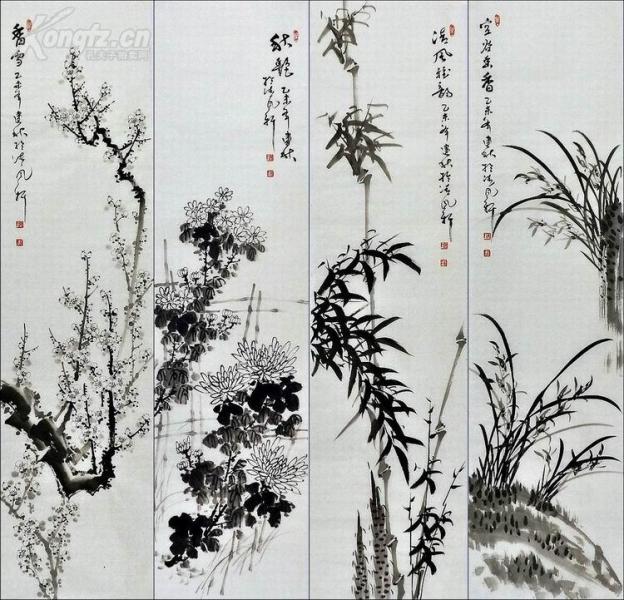 Kongfz.cn
孔夫子旧书网
香雪 乙未年 建秋 于清风轩
秋艳 乙未年 建秋
于清风轩
清风雅韵 乙未年 建秋 于清风轩
空谷幽香 乙未年 建秋 于清风轩